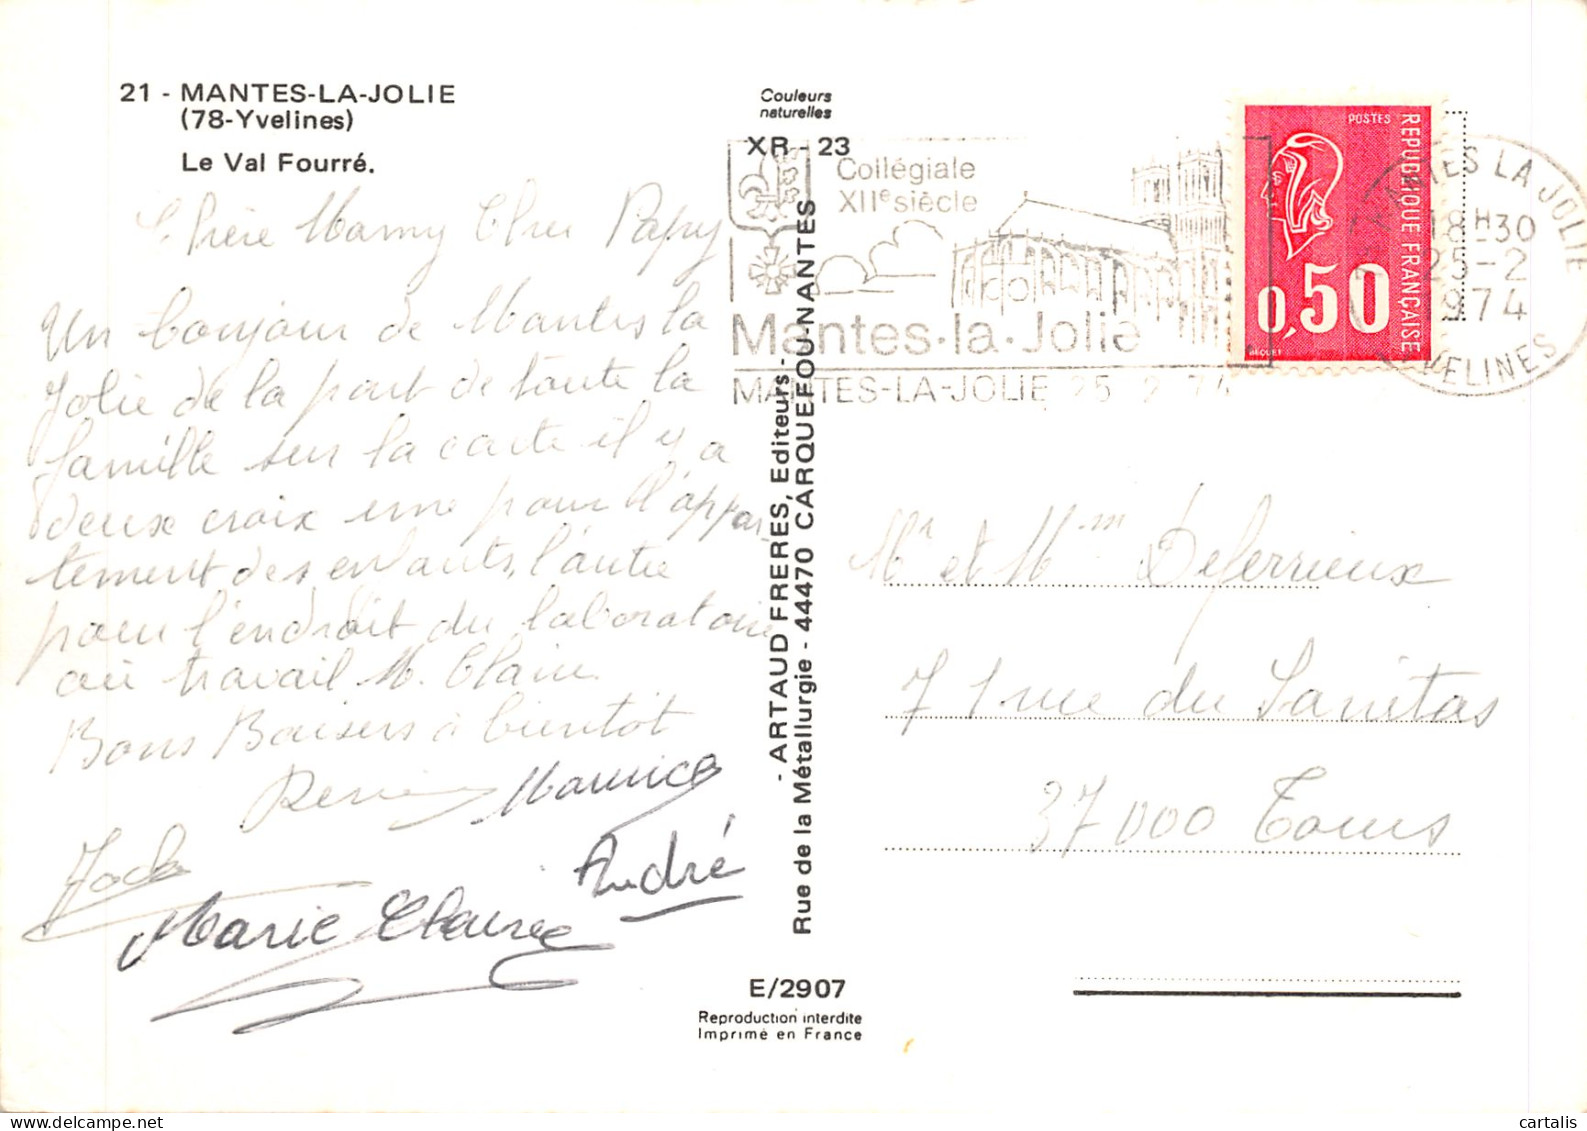 21 - MANTES-LA-JOLIE
(78-Yvelines)
Le Val Fourré.
Chère Mamy Cher Papy
Un bonjour de Mantes la
Jolie de la part de toute la
famille sur la carte il y a
deux croix une pour l'appar
tement des enfants, l'autre
pour l'endroit du laboratoire
où travail M. Claire.
Bons Baisers à bientôt
Maurice
André
Marie Claire
Couleurs
naturelles
XR - 23
- ARTAUD FRERES, Editeurs -
Rue de la Métallurgie - 44470 CARQUEFOU-NANTES
E/2907
Reproduction interdite
Imprimé en France
Collégiale
XIIe siècle
Mantes-la-Jolie
MANTES-LA-JOLIE 25 2 74
POSTES
REPUBLIQUE FRANÇAISE
0,50
BEQUET
MANTES LA JOLIE
18H30
25-2
1974
YVELINES
Mr et Mme Deferrieux
71 rue du Sanitas
37000 Tours
cartalis